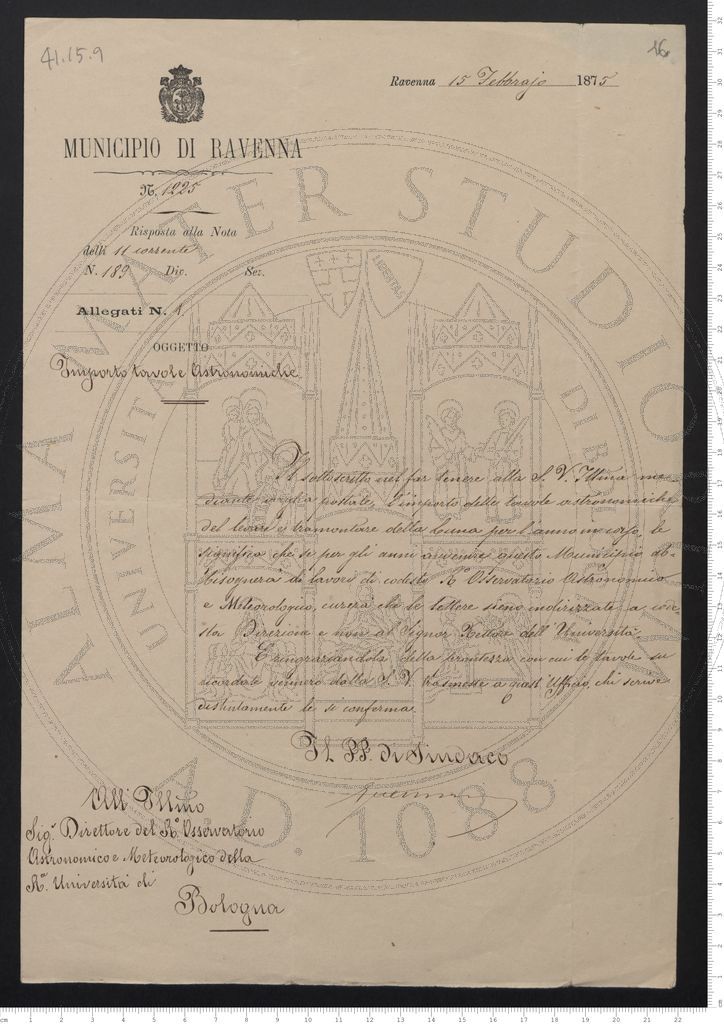 41.15.9
16
Ravenna 15 Febbrajo 1875
MUNICIPIO DI RAVENNA
N. 1225
Risposta alla Nota
delli 11 corrente
N. 189 Div. Sez.
Allegati N. 1.
OGGETTO
Importo tavole Astronomiche
Il sottoscritto nel far tenere alla S. V. Illma me-
diante vaglia postale, l'importo delle tavole astronomiche
del levare e tramontare della Luna per l'anno in corso, le
significa che se per gli anni avvenire questo Municipio ab-
bisognerà di lavori di codesto R.o Osservatorio Astronomico
e Meteorologico, curerà che le lettere sieno indirizzate a code-
sta Direzione e non al Signor Rettore dell'Università.
E ringraziandola della prontezza con cui le tavole su
ricordate vennero dalla S. V. trasmesse a quest'Uffizio, chi scrive
distintamente le si conferma.
Il ff. di Sindaco
All' Illmo
Sig.r Direttore del R.o Osservatorio
Astronomico e Meteorologico della
R.a Università di
Bologna
ALMA MATER STUDIORUM
A.D. 1088